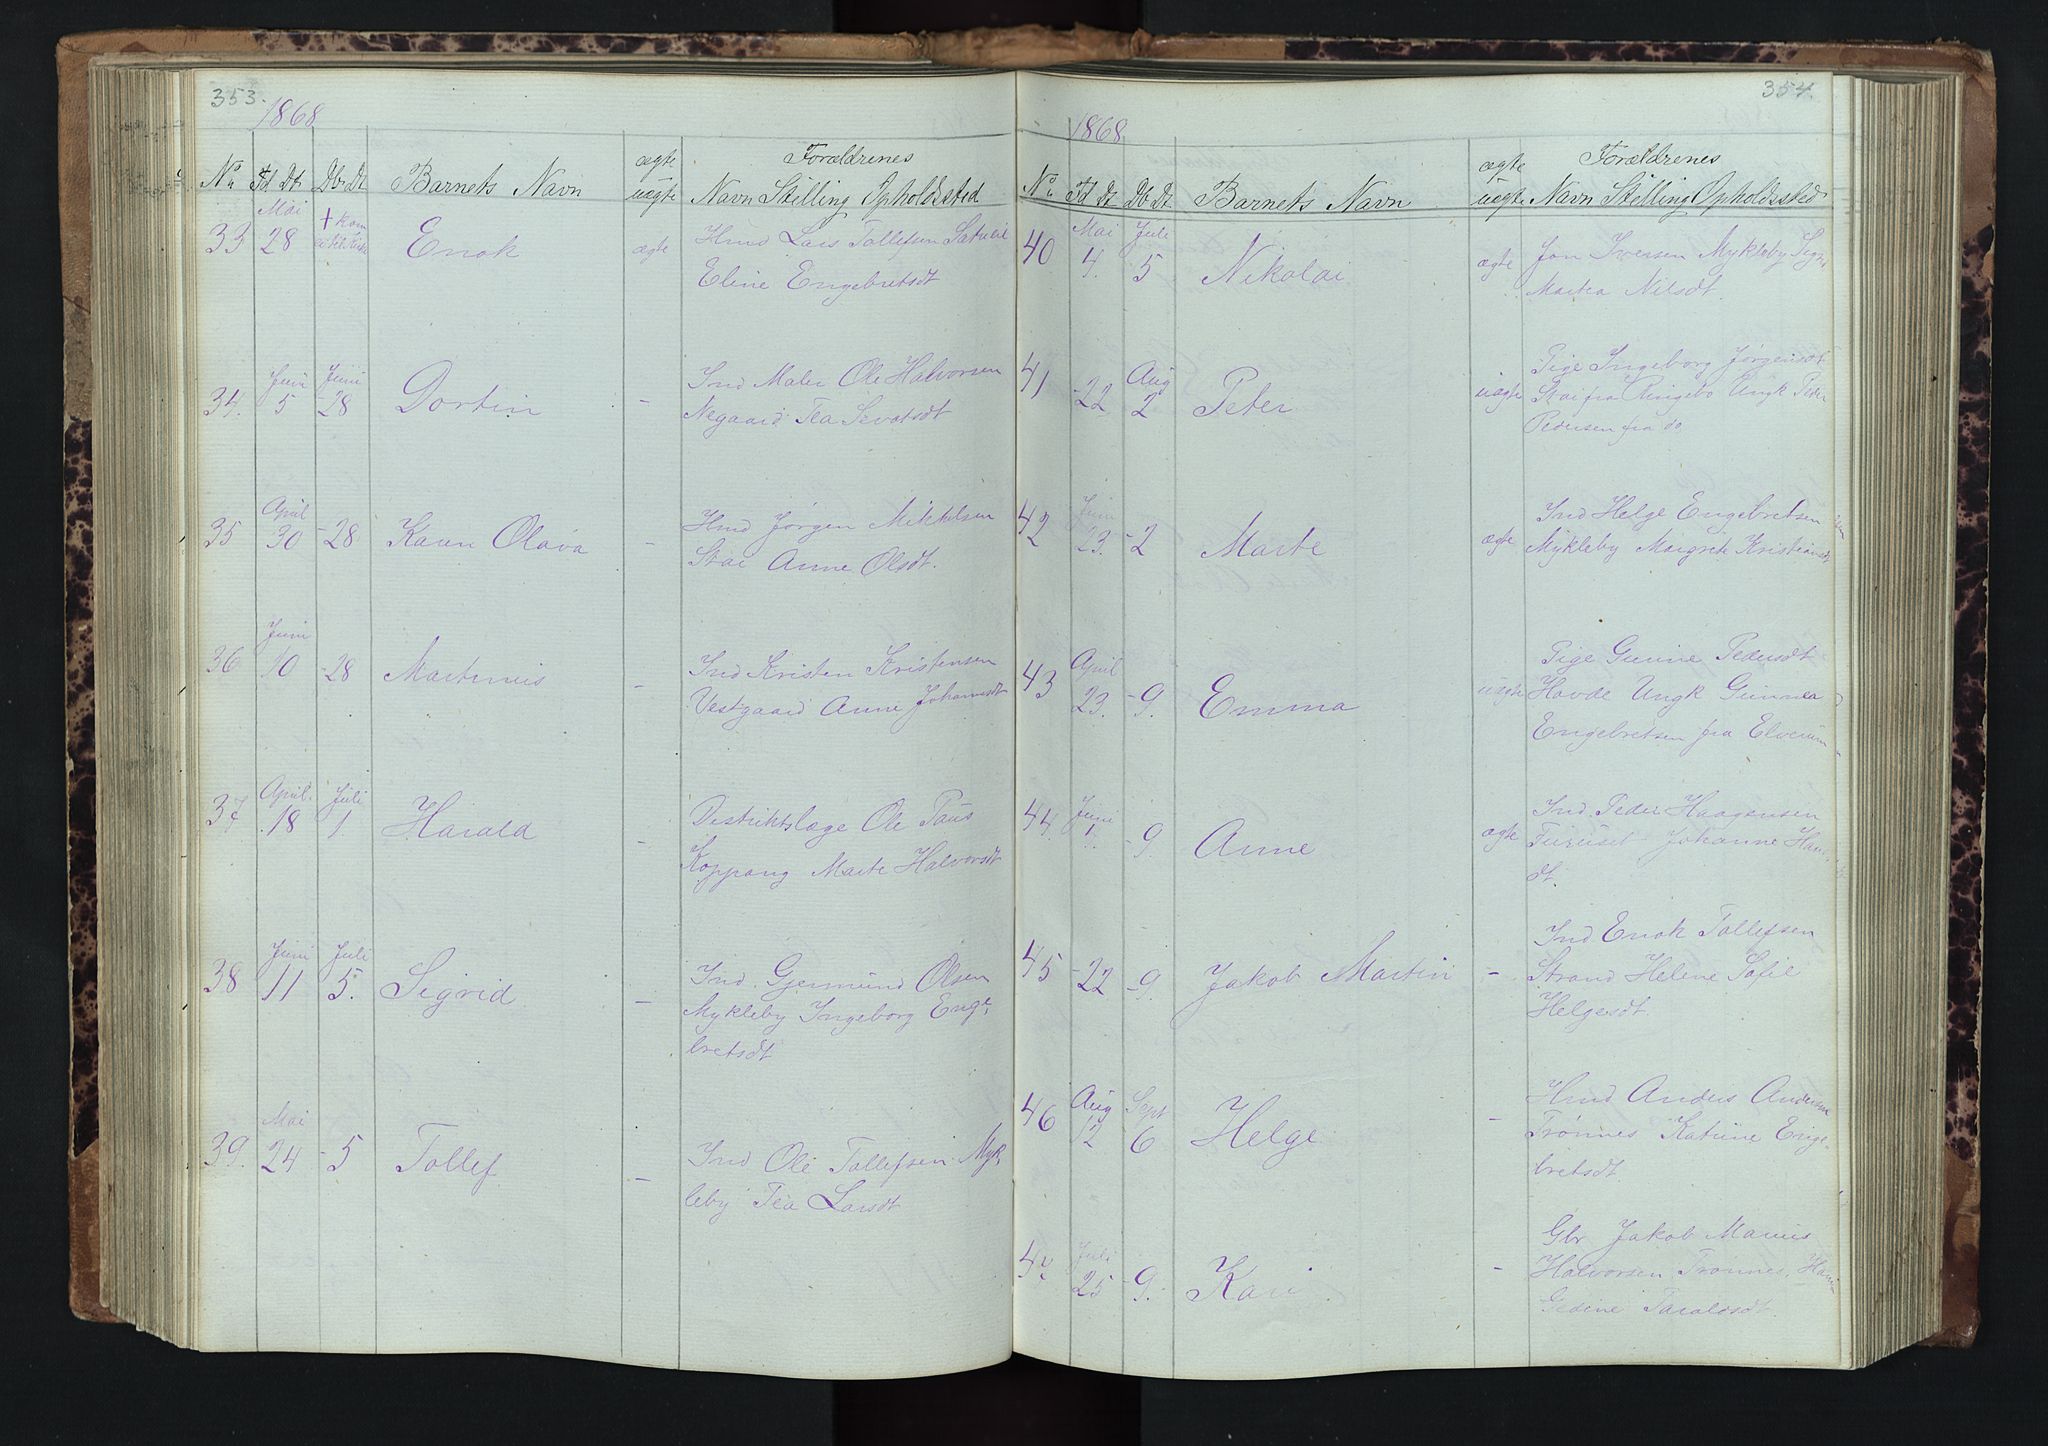 353.
1868
No Fd Dt Db Dt Barnets Navn ægte uægte Forældrenes Navn Stilling Opholdssted
33 Mai 28 + Enok ægte Hmd Lars Tollefsen
Eline Engebretsdt
34. Juni 5 Juni 28 Dortin - Ind Maler Ole Halvorsen
Negaard Tea Sevatsdt
35 April 30 -28 Karen Olava - Hmd Jørgen Mikkelsen
Stai Anne Olsdt.
36 Juni 10 -28 Martinus - Ind Kristen Kristensen
Vestgaard Anne Johannesdt
37 April 18 Juli 1 Harald - Distriktslæge Ole Taus
Koppang Marte Halvorsdt
38 Juni 11 Juli 5. Sigrid - Ind. Gjermund Olsen
Mykleby Ingeborg Enge
bretsdt
39. Mai 24 -5 Tollef - Ind Ole Tollefsen Myk
leby Tea Larsdt
354.
1868
No Fd Dt Db Dt Barnets Navn ægte uægte Forældrenes Navn Stilling Opholdssted
40 Mai 4. Juli 5 Nikolai ægte Jon Iversen Mykleby
Martea Nilsdt.
41 -22 Aug 2 Peter uægte Pige Ingeborg Jørgensdt
Stai fra Ringebo Ungk Peder
Pedersen fra do
42 Juni 23. -2 Marte ægte Ind Helge Engebretsen
Mykleby Margrete Kristiansdt
43 April 23. -9. Emma uægte Pige Gunine Pedersdt
Hovde Ungk Gunner
Engebretsen fra Elverum
44. Juni 1. -9. Anne ægte Ind. Peder Haagensen
Furuset Johanne
dt
45 -22 -9. Jakob Martin - Ind Enok Tollefsen
Strand Helene Sofie
Helgesdt.
46 Aug 12 Sept 6 Helge - Hmd Anders Andersen
Trønnes Katrine Enge-
bretsdt.
47. Juli 25 -9. Kari - Gbr Jakob Marius
Halvorsen Trønnes
Gedine Taraldsdt.